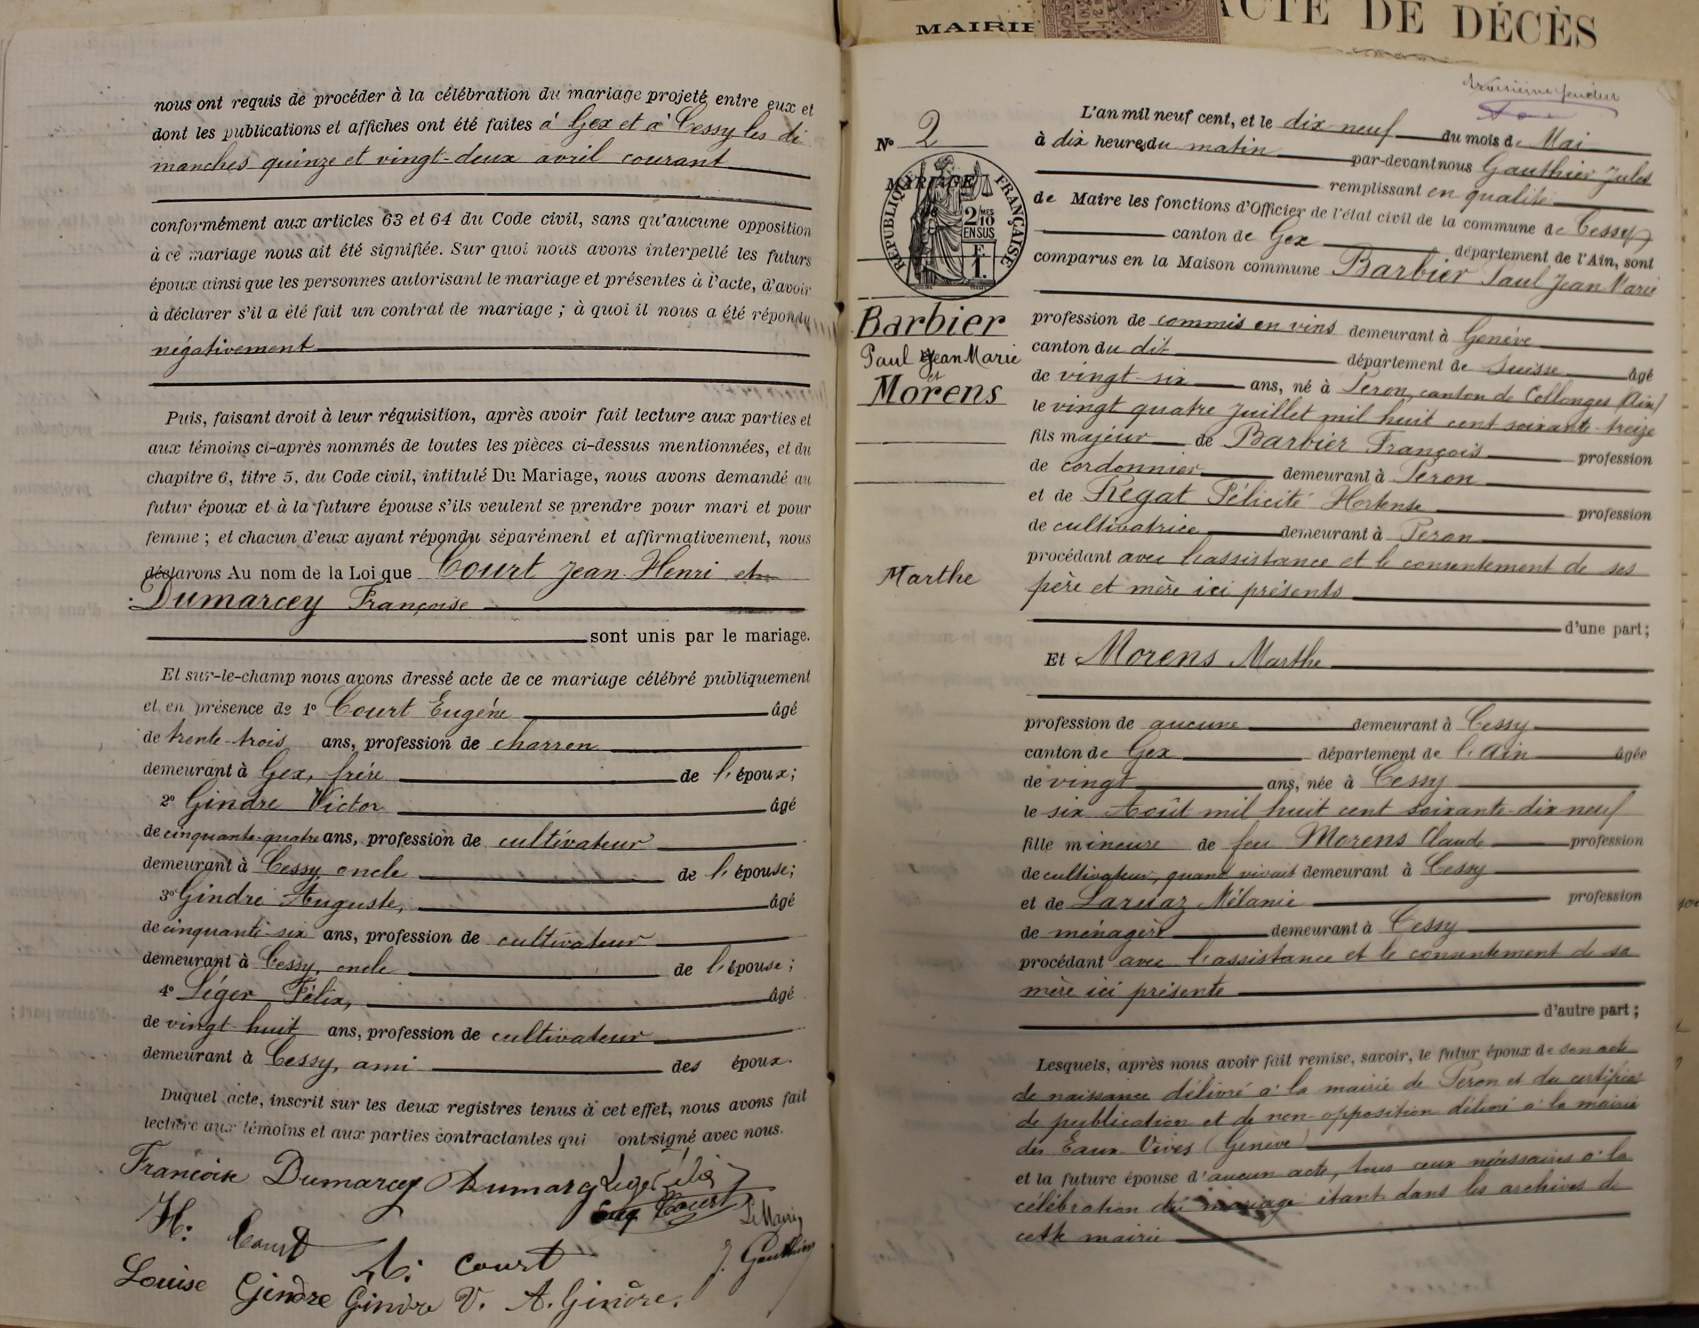 nous ont requis de procéder à la célébration du mariage projeté entre eux et
dont les publications et affiches ont été faites à Gex et à Cessy les di
manches quinze et vingt-deux avril courant
conformément aux articles 63 et 64 du Code civil, sans qu'aucune opposition
à ce mariage nous ait été signifiée. Sur quoi nous avons interpellé les futurs
époux ainsi que les personnes autorisant le mariage et présentes à l'acte, d'avoir
à déclarer s'il a été fait un contrat de mariage ; à quoi il nous a été répondu
négativement
Puis, faisant droit à leur réquisition, après avoir fait lecture aux parties et
aux témoins ci-après nommés de toutes les pièces ci-dessus mentionnées, et du
chapitre 6, titre 5, du Code civil, intitulé Du Mariage, nous avons demandé au
futur époux et à la future épouse s'ils veulent se prendre pour mari et pour
femme ; et chacun d'eux ayant répondu séparément et affirmativement, nous
déclarons Au nom de la Loi que Court Jean Henri et
Dumarcey Françoise
sont unis par le mariage.
Et sur-le-champ nous avons dressé acte de ce mariage célébré publiquement
et en présence de 1° Court Eugéne âgé
de trente-trois ans, profession de charron
demeurant à Gex, frére de l'époux;
2° Gindre Victor âgé
de cinquante-quatre ans, profession de cultivateur
demeurant à Cessy, oncle de l'épouse;
3° Gindre Auguste, âgé
de cinquante-six ans, profession de cultivateur
demeurant à Cessy, oncle de l'épouse;
4° Léger Félix, âgé
de vingt huit ans, profession de cultivateur
demeurant à Cessy, ami des époux.
Duquel acte, inscrit sur les deux registres tenus à cet effet, nous avons fait
lecture aux témoins et aux parties contractantes qui ont signé avec nous.
Francoise Dumarcey Dumarcey Leger Félix
Eug Court
Le Maire
H. Court A. Court J. Gauthier
Louise Gindre Gindre V. A. Gindre.
MAIRIE
ACTE DE DÉCÈS
N° 2
MARIAGE
RÉPUBLIQUE FRANÇAISE
2/10 EN SUS
F 1.
Barbier
Paul Jean Marie
et
Morens
Marthe
L'an mil neuf cent, et le dix-neuf du mois de Mai
à dix heures du matin par-devant nous Gauthier Jules
remplissant en qualité
de Maire les fonctions d'Officier de l'état civil de la commune de Cessy
canton de Gex département de l'Ain, sont
comparus en la Maison commune Barbier Paul Jean Marie
profession de commis en vins demeurant à Genève
canton du dit département de Suisse âgé
de vingt-six ans, né à Peron, canton de Collonges (Ain)
le vingt quatre Juillet mil huit cent soixante-treize
fils majeur de Barbier François profession
de cordonnier demeurant à Peron
et de Régat Félicité Hortense profession
de cultivatrice demeurant à Peron
procédant avec l'assistance et le consentement de ses
père et mère ici présents
d'une part;
Et Morens Marthe
profession de aucune demeurant à Cessy
canton de Gex département de l'Ain âgée
de vingt ans, née à Cessy
le six Août mil huit cent soixante-dix neuf
fille mineure de feu Morens Claude profession
de cultivateur, quand vivait demeurant à Cessy
et de Laruaz Mélanie profession
de ménagère demeurant à Cessy
procédant avec l'assistance et le consentement de sa
mère ici présente
d'autre part;
Lesquels, après nous avoir fait remise, savoir, le futur époux de son acte
de naissance délivré à la mairie de Peron et du certificat
de publication et de non-opposition délivré à la mairie
des Eaux Vives (Genève)
et la future épouse d'aucun acte, tous ceux nécessaires à la
célébration du mariage étant dans les archives de
cette mairie